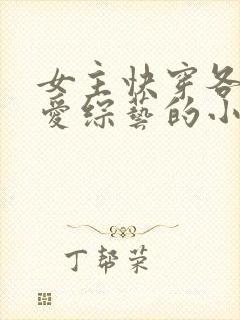 女主快穿各
爱综艺的小
丁帮荣